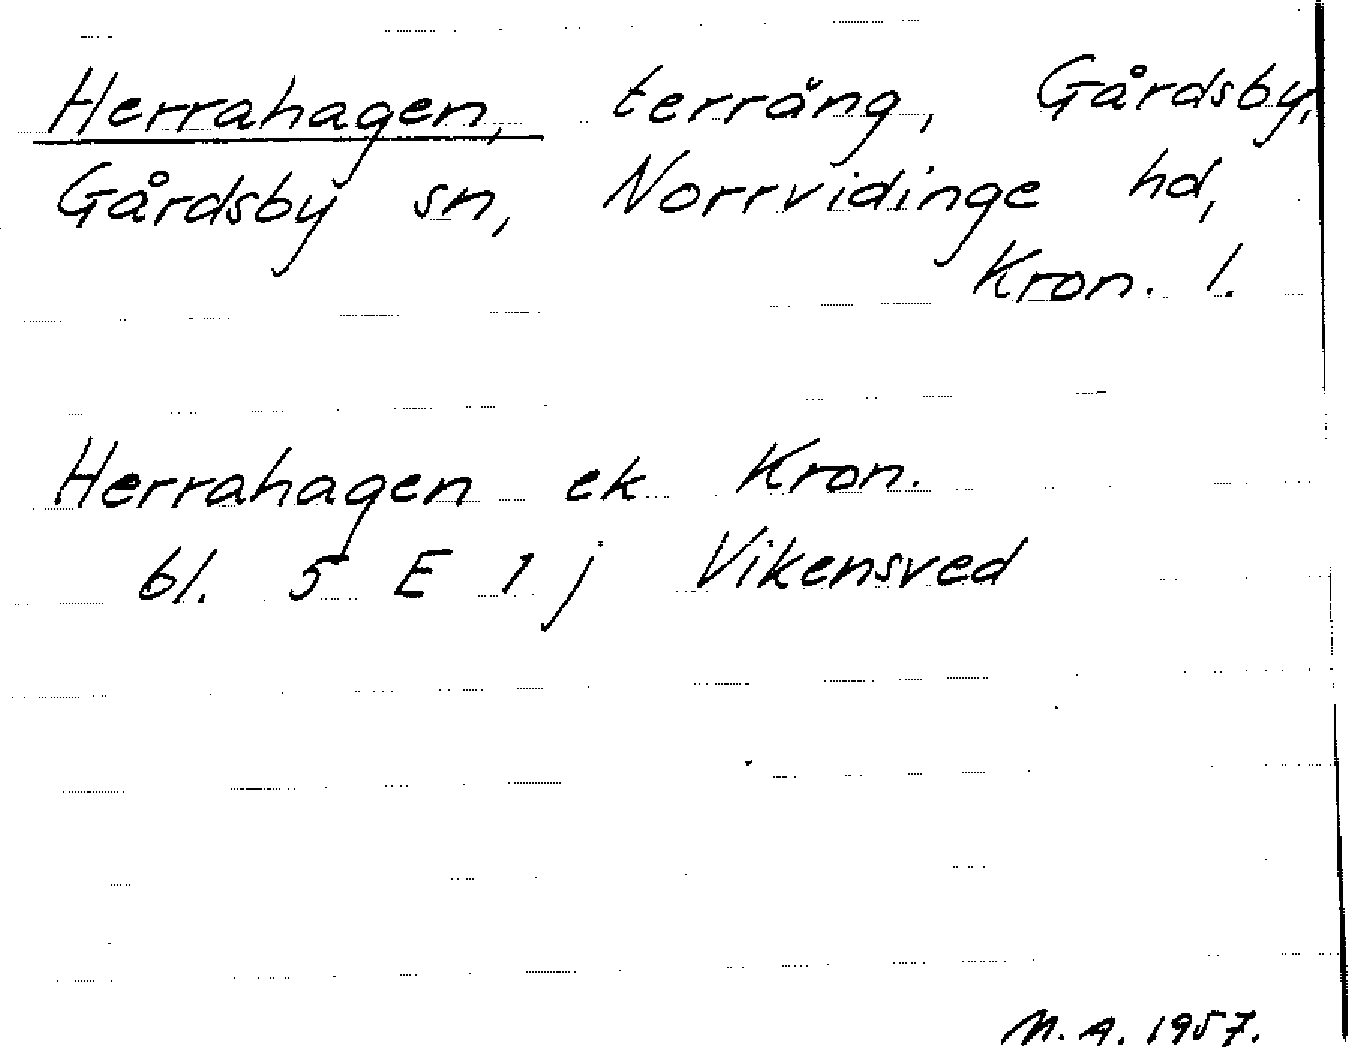 Herrahagen, terräng, Gårdsby,
Gårdsby sn, Norrvidinge hd,
Kron. l.
Herrahagen ek Kron.
bl. 5 E 1 j Vikensved
M. A. 1957.